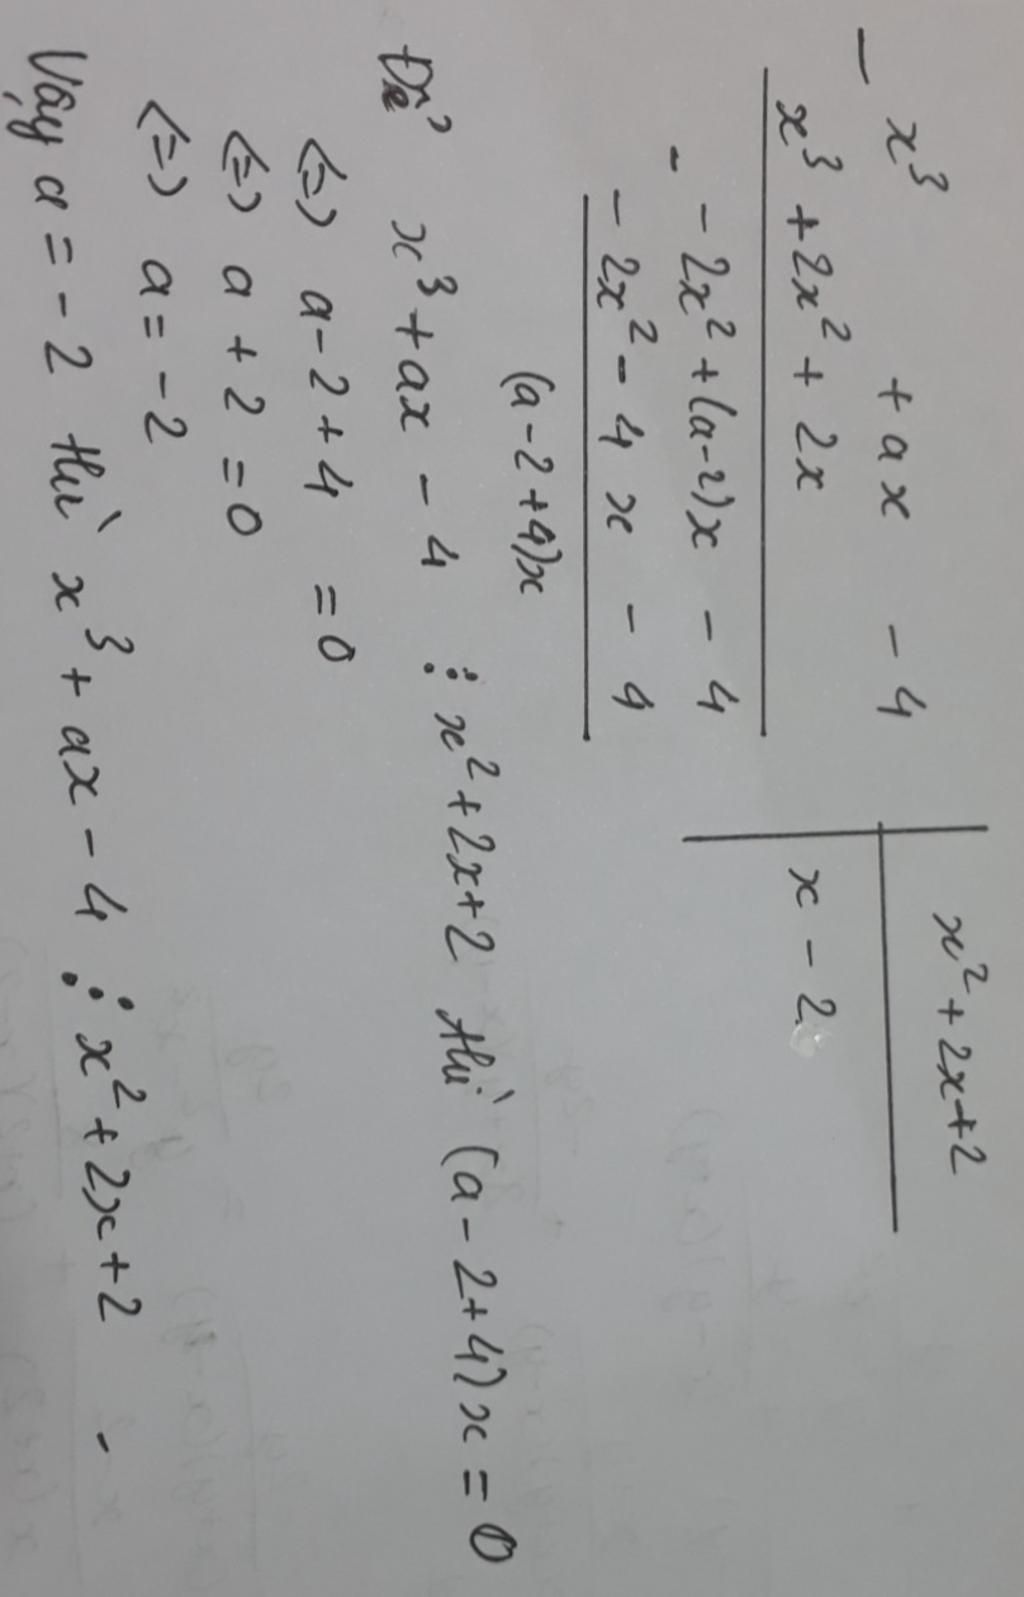 x³ + ax - 4 | x² + 2x + 2
-
x³ + 2x² + 2x | x - 2
- 2x² + (a-2)x - 4
-
- 2x² - 4x - 4
(a - 2 + 4)x
Để x³ + ax - 4 ⋮ x² + 2x + 2 thì (a - 2 + 4)x = 0
<=> a - 2 + 4 = 0
<=> a + 2 = 0
<=> a = -2
Vậy a = -2 thì x³ + ax - 4 ⋮ x² + 2x + 2 -